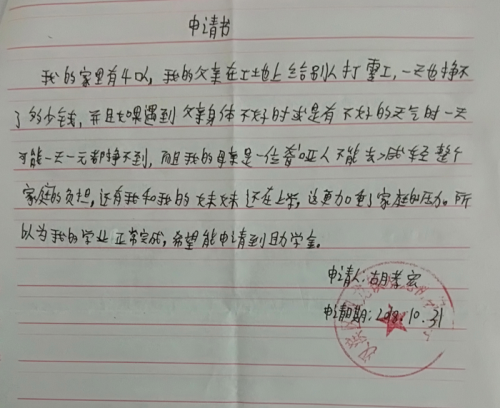 申请书
我的家里有4口人,我的父亲在工地上给别人打零工,一天也挣不
了多少钱,并且如果遇到父亲身体不好时或是有不好的天气时一天
可能一天一元都挣不到,而且我的母亲是一位聋哑人不能去减轻整个
家庭的负担,还有我和我的妹妹还在上学,这更加重了家庭的压力。所
以为我的学业正常完成,希望能申请到助学金。
申请人:胡孝宏
申请日期:2018.10.31